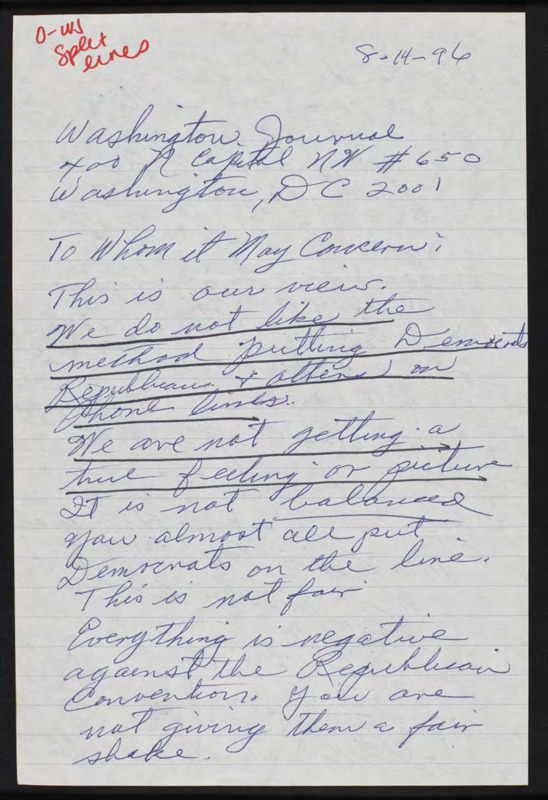 O-WJ
Split
lines
8-14-96
Washington Journal
400 N Capital NW #650
Washington, DC 2001
To Whom it May Concern:
This is our view.
We do not like the
method putting Democrats
Republicans & others on
phone lines.
We are not getting a
true feeling or picture
It is not balanced
you almost all put
Democrats on the line.
This is not fair
Everything is negative
against the Republican
Convention. You are
not giving them a fair
shake.